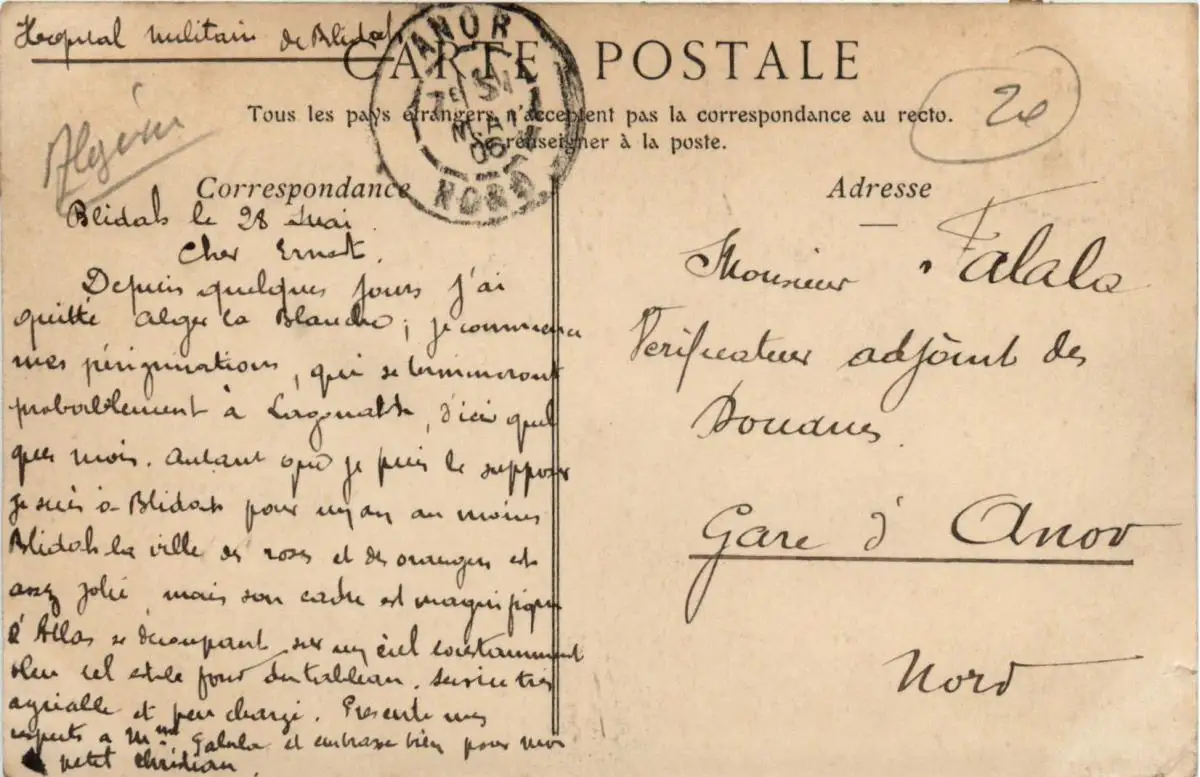 Hopital militaire de Blidah
CARTE POSTALE
Tous les pays étrangers n'acceptent pas la correspondance au recto.
Se renseigner à la poste.
Algérie
20
ANOR
7E 31
MAI
06
NORD
Correspondance
Blidah le 28 Mai
Cher Ernest.
Depuis quelques jours j'ai
quitté Alger la Blanche; je commence
mes pérégrinations, qui se termineront
probablement à Laghouat, d'ici quel
ques mois. Autant que je puis le supposer
je suis à Blidah pour un an au moins
Blidah la ville des roses et des orangers est
assez jolie, mais son cadre est magnifique
l'Atlas se découpant sur un ciel constamment
bleu tel est le fond du tableau. Service très
agréable et peu chargé. Présente mes
respects à Mme Falala et embrasse bien pour moi
le petit Christian
Adresse
Monsieur Falala
Vérificateur adjoint des
Douanes.
Gare d'Anor
Nord